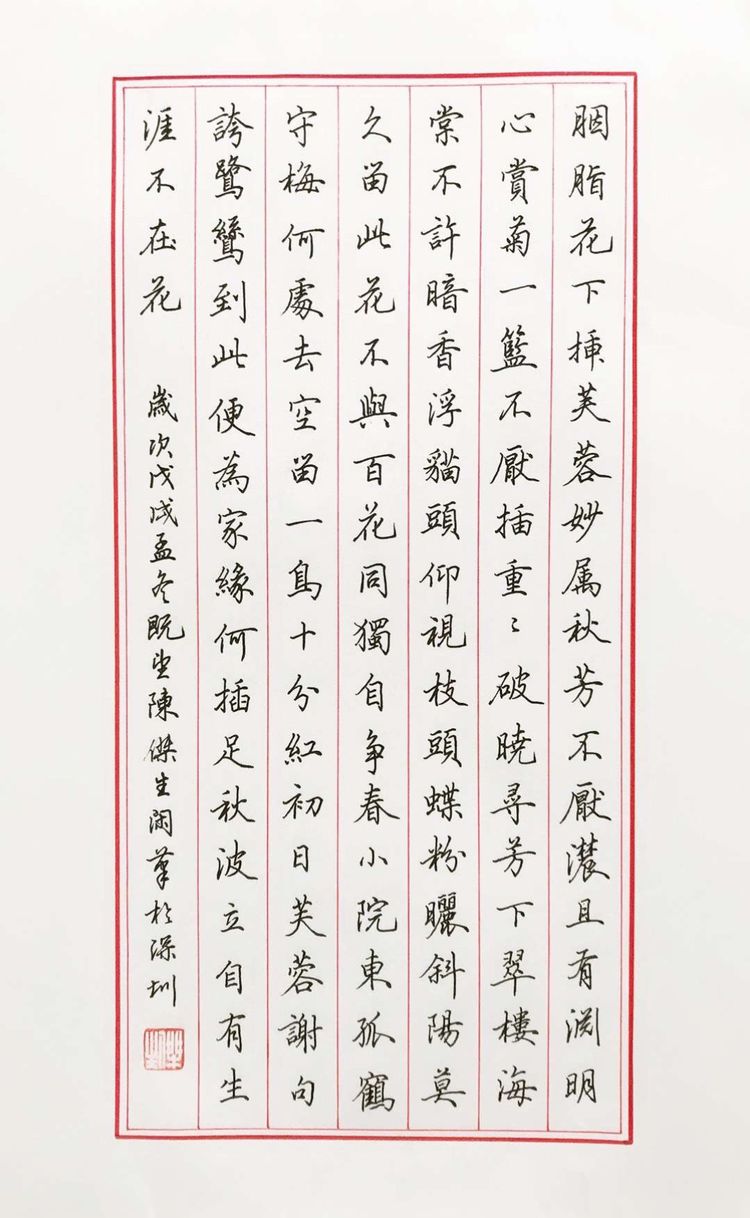 胭脂花下挿芙蓉妙属秋芳不厭濃且有渊明
心賞菊一籃不厭插重〻破曉尋芳下翠樓海
棠不許暗香浮貓頭仰視枝頭蝶粉曬斜陽莫
久留此花不與百花同獨自争春小院東孤鶴
守梅何處去空留一鳥十分紅初日芙蓉謝句
誇鷺鷥到此便為家緣何插足秋波立自有生
涯不在花 歲次戊戌孟冬既望陳傑生闲筆於深圳